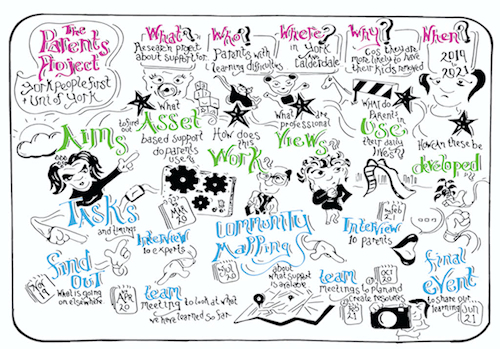 The
Parents
Project
York people first
+ Uni of York
What?
Research project
about support for:
Who?
Parents with
learning difficulties
Where?
in York
and
Calderdale
Why?
Cos they are
more likely to have
their kids removed
When?
2019
2021
Aims
What
Asset
based support
do parents
use?
How does
this
Work?
What are
professional
Views?
What do
Parents
Use
in their daily
lives?
How can these be
developed?
Tasks
and timings
Find
Out
What is going
on elsewhere
Nov
19
Mar
20
Interview
to experts
Apr
20
team
Meeting to look at what
we have learned so far
Community
Mapping
about
what support
is available
Feb
21
Interview
to parents
Oct
20
team
Meetings to plan and
create resources
final
event
to share our
learning
Jun
21